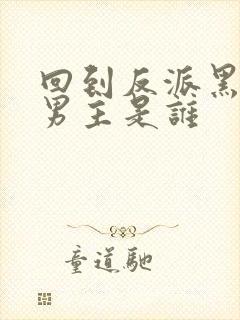 回到反派黑
男主是誰
童道馳